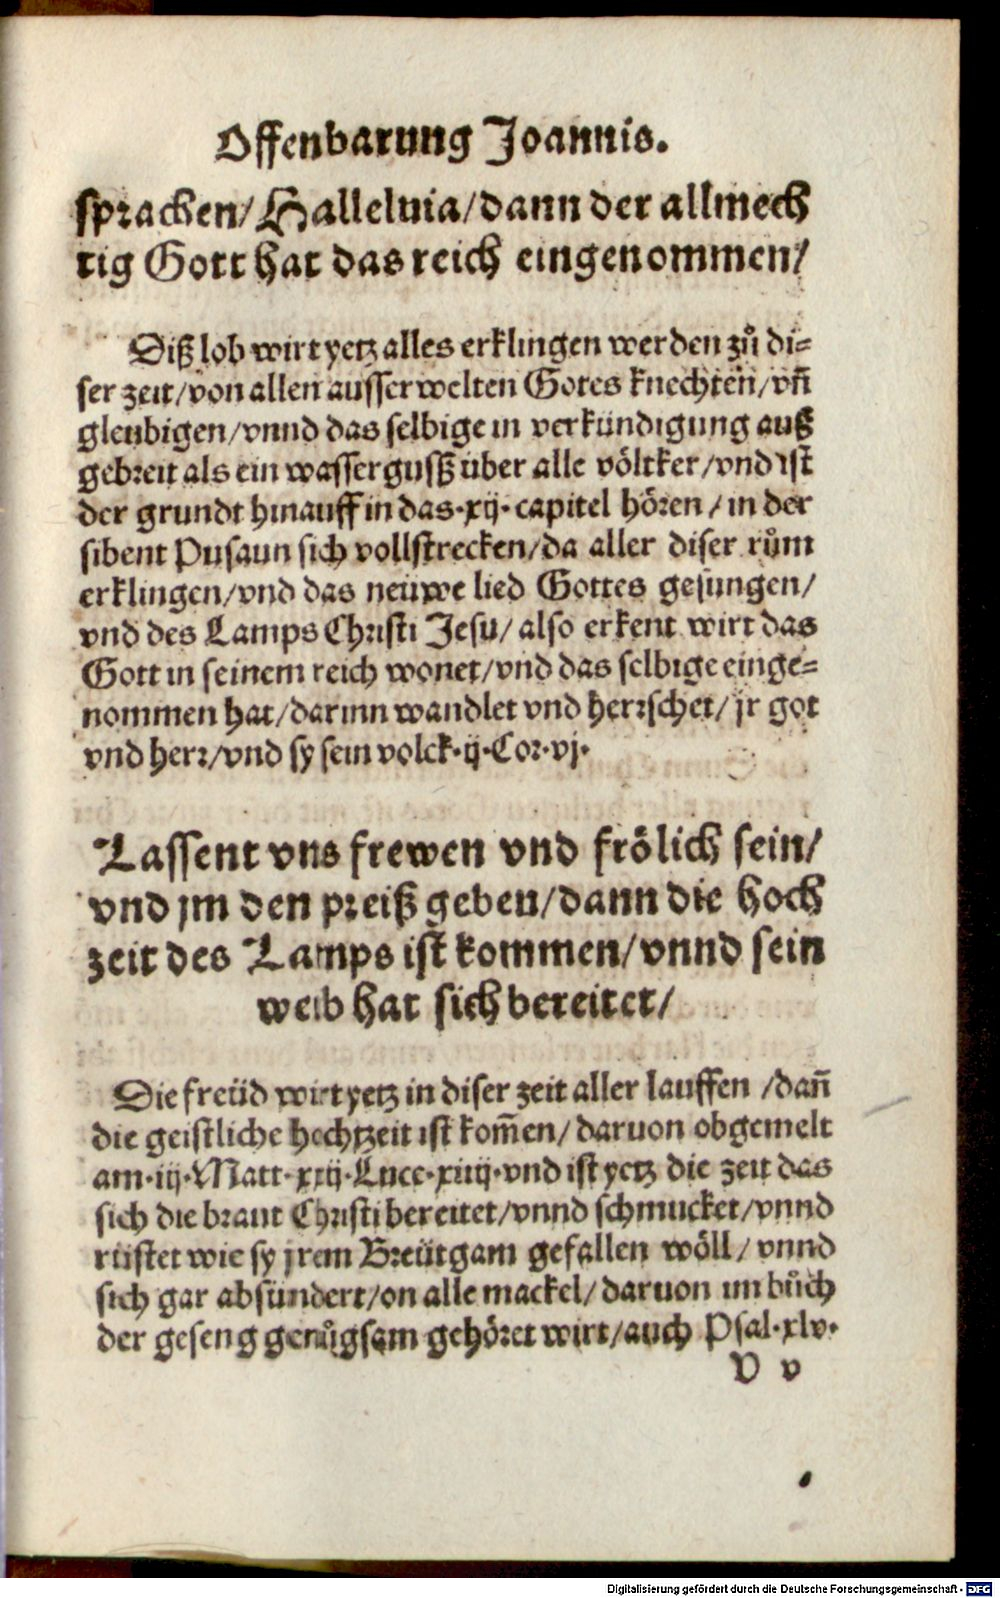 Offenbarung Joannis.
sprachen/ Halleluia/ dann der allmech
tig Gott hat das reich eingenommen/
Diß lob wirt yetz alles erklingen werden zů di⸗
ser zeit/ von allen ausserwelten Gotes knechten/ vn̄
gleubigen/ vnnd das selbige in verkündigung auß
gebreit als ein wassergusß über alle völcker/ vnd ist
der grundt hinauff in das ·xij· capitel hören/ in der
sibent Pusaun sich vollstrecken/ da aller diser rům
erklingen/ vnd das neüwe lied Gottes gesungen/
vnd des Lamps Christi Jesu/ also erkent wirt das
Gott in seinem reich wonet/ vnd das selbige einge⸗
nommen hat/ darinn wandlet vnd herrschet/ jr got
vnd herr/ vnd sy sein volck·ij·Cor·vj·
Lassent vns frewen vnd frölich sein/
vnd jm den preiß geben/ dann die hoch
zeit des Lamps ist kommen/ vnnd sein
weib hat sich bereitet/
Die freüd wirt yetz in diser zeit aller lauffen / dan̄
die geistliche hochtzeit ist kom̄en/ daruon obgemelt
am·iij·Matt·xxij·Luce·xiiij·vnd ist yetz die zeit das
sich die braut Christi bereitet/ vnnd schmucket/ vnnd
rüstet wie sy jrem Breütgam gefallen wöll/ vnnd
sich gar absündert/ on alle mackel/ daruon im bůch
der geseng genůgsam gehöret wirt/ auch Psal·xlv·
V v
Digitalisierung gefördert durch die Deutsche Forschungsgemeinschaft - DFG